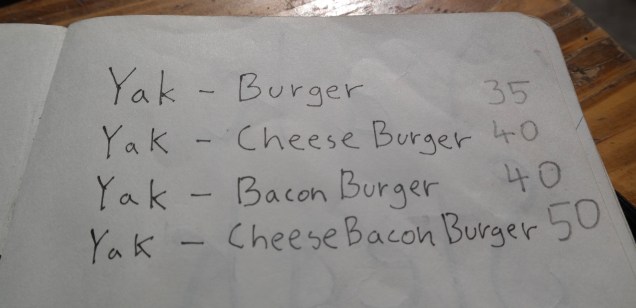 Yak - Burger 35
Yak - Cheese Burger 40
Yak - Bacon Burger 40
Yak - Cheese Bacon Burger 50